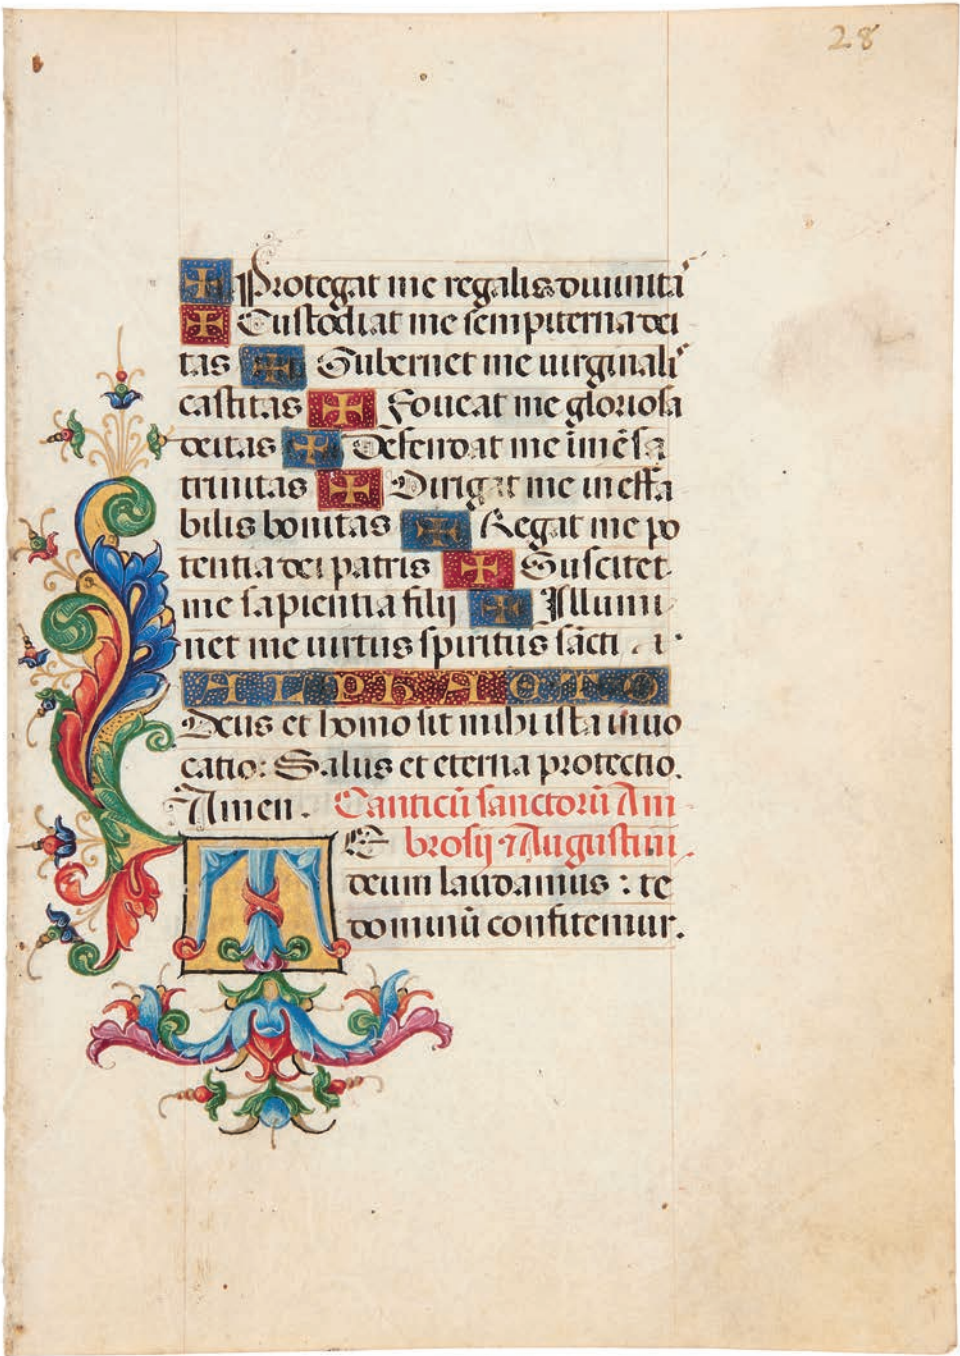 28
✠ Protegat me regalis diuinita
✠ Custodiat me sempiterna dei
tas ✠ Gubernet me uirginali
castitas ✠ Foueat me gloriosa
deitas ✠ Defendat me īmēsa
trinitas ✠ Dirigat me ineffa
bilis bonitas ✠ Regat me po
tentia dei patris ✠ Suscitet
me sapientia filij ✠ Illumi
net me uirtus spiritus sācti
ALPHA ET O
Deus et homo sit mihi ista inuo
catio: Salus et eterna protectio.
Amen. Canticū sanctorū Am
TE brosij ⁊ Augustini.
deum laudamus : te
dominū confitemur.